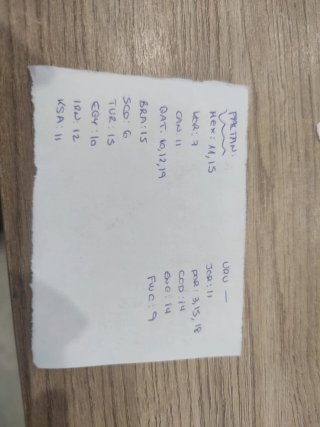 FALTAN:
MEX: 11, 15
KOR: 7
CAN 11
QAT: 10, 12, 19
BRA: 15
SCO: 6
TUR: 15
EGY: 10
IRN: 12
KSA: 11
URU —
JOR: 11
POR: 3, 15, 18
COD: 14
ENG: 14
FWC: 9